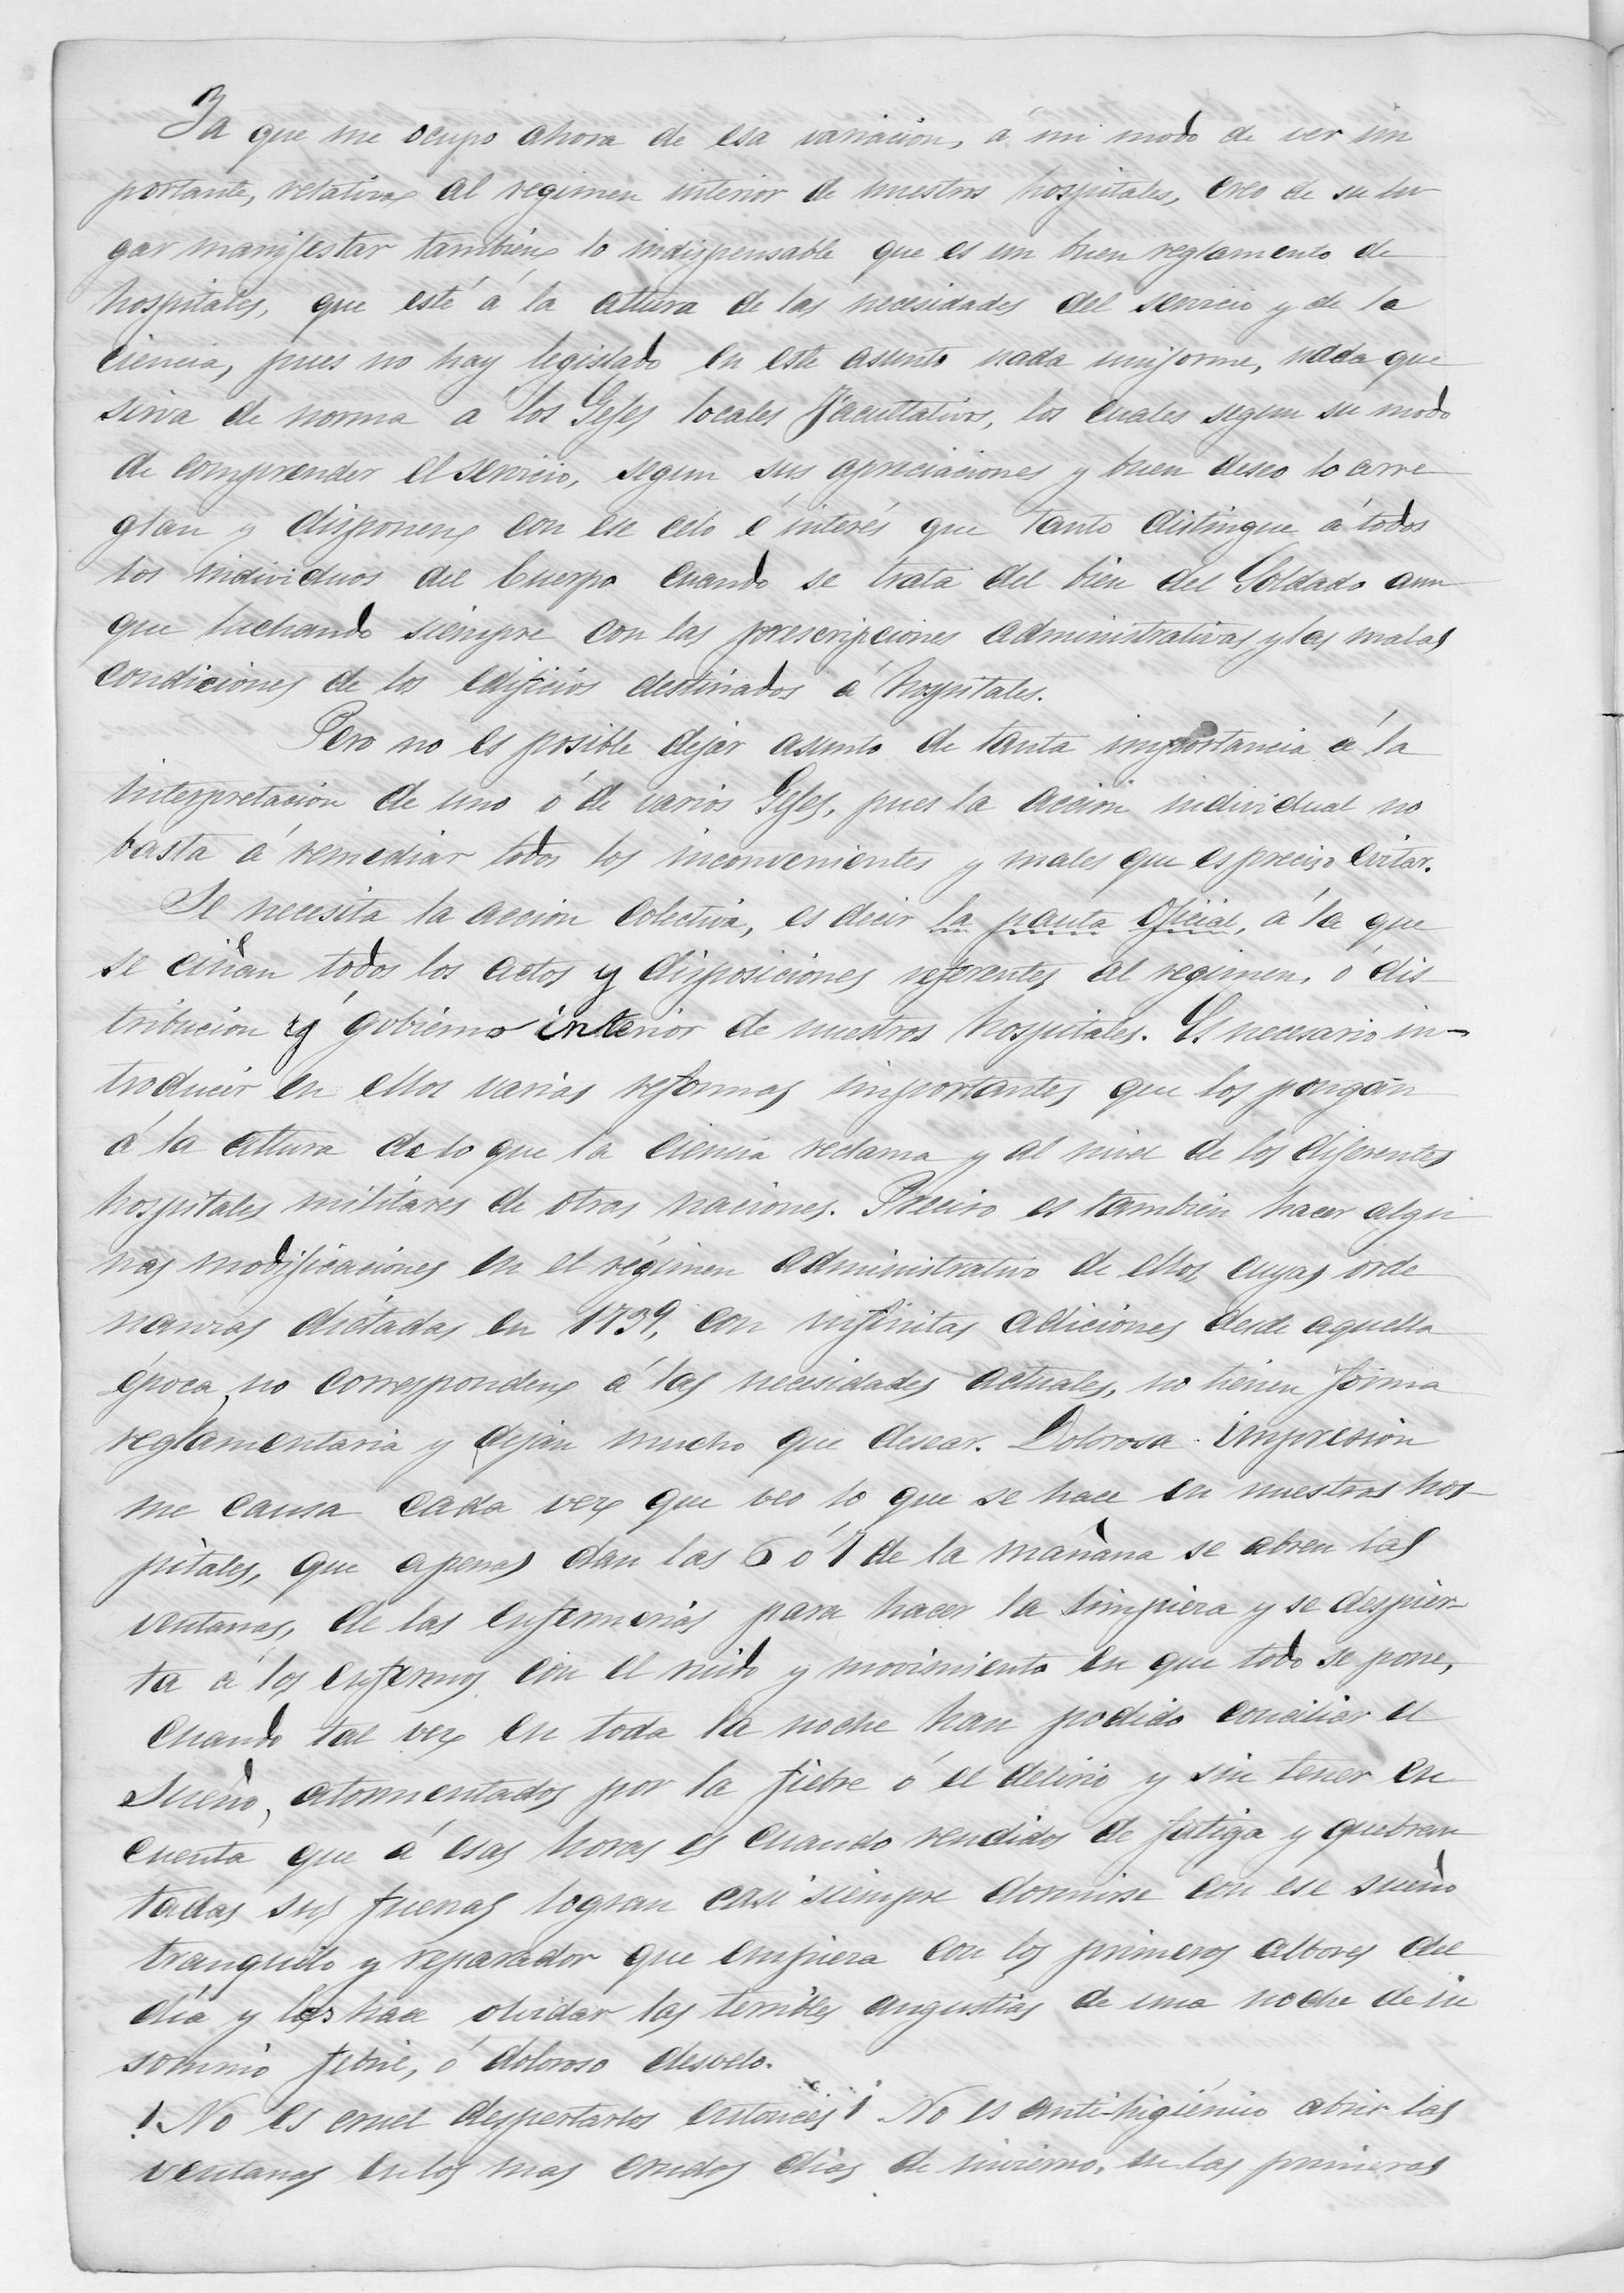 Ya que me ocupo ahora de esa variacion, á mi modo de ver im
portante, relativa al regimen interior de nuestros hospitales, creo de su lu
gar manifestar tambien lo indispensable que es un buen reglamento de
hospitales, que esté á la altura de las necesidades del servicio y de la
ciencia, pues no hay legislado en este asunto nada uniforme, nada que
sirva de norma a los Gefes locales facultativos, los cuales segun su modo
de comprender el servicio, segun sus apreciaciones y buen deseo lo arre
glan y disponen con ese celo é interés que tanto distingue á todos
los individuos del Cuerpo cuando se trata del bien del Soldado aun
que luchando siempre con las prescripciones administrativas y las malas
condiciones de los edificios destinados á hospitales.
Pero no es posible dejar asunto de tanta importancia á la
interpretacion de uno ó de varios Gefes, pues la accion individual no
basta á remediar todos los inconvenientes y males que es preciso evitar.
Se necesita la accion colectiva, es decir la pauta oficial, á la que
se ciñan todos los actos y disposiciones referentes al regimen, ó dis-
tribucion y gobierno interior de nuestros hospitales. Es necesario in-
troducir en ellos varias reformas importantes que los pongan
á la altura de lo que la ciencia reclama y al nivel de los diferentes
hospitales militares de otras naciones. Preciso es tambien hacer algu
nas modificaciones en el régimen administrativo de ellos cuyas orde
nanzas dictadas en 1739, con infinitas adiciones desde aquella
época, no corresponden á las necesidades actuales, no tienen forma
reglamentaria y dejan mucho que desear. Dolorosa impresion
me causa cada vez que veo lo que se hace en nuestros hos-
pitales, que apenas dan las 6 ó 7 de la mañana se abren las
ventanas, de las enfermerias para hacer la limpieza y se despier-
ta á los enfermos con el ruido y movimiento en que todo se pone,
cuando tal vez en toda la noche han podido conciliar el
sueño, atormentados por la fiebre ó el delirio y sin tener en
cuenta que á esas horas es cuando rendidos de fatiga y quebran
tadas sus fuerzas logran casi siempre dormirse con ese sueño
tranquilo y reparador que empieza con los primeros albores del
dia y les hace olvidar las terribles angustias de una noche de in
somnio febril, ó doloroso desvelo.
! No es cruel despertarlos entonces ! No es anti-higiénico abrir las
ventanas en los mas crudos dias de invierno, en las primeras